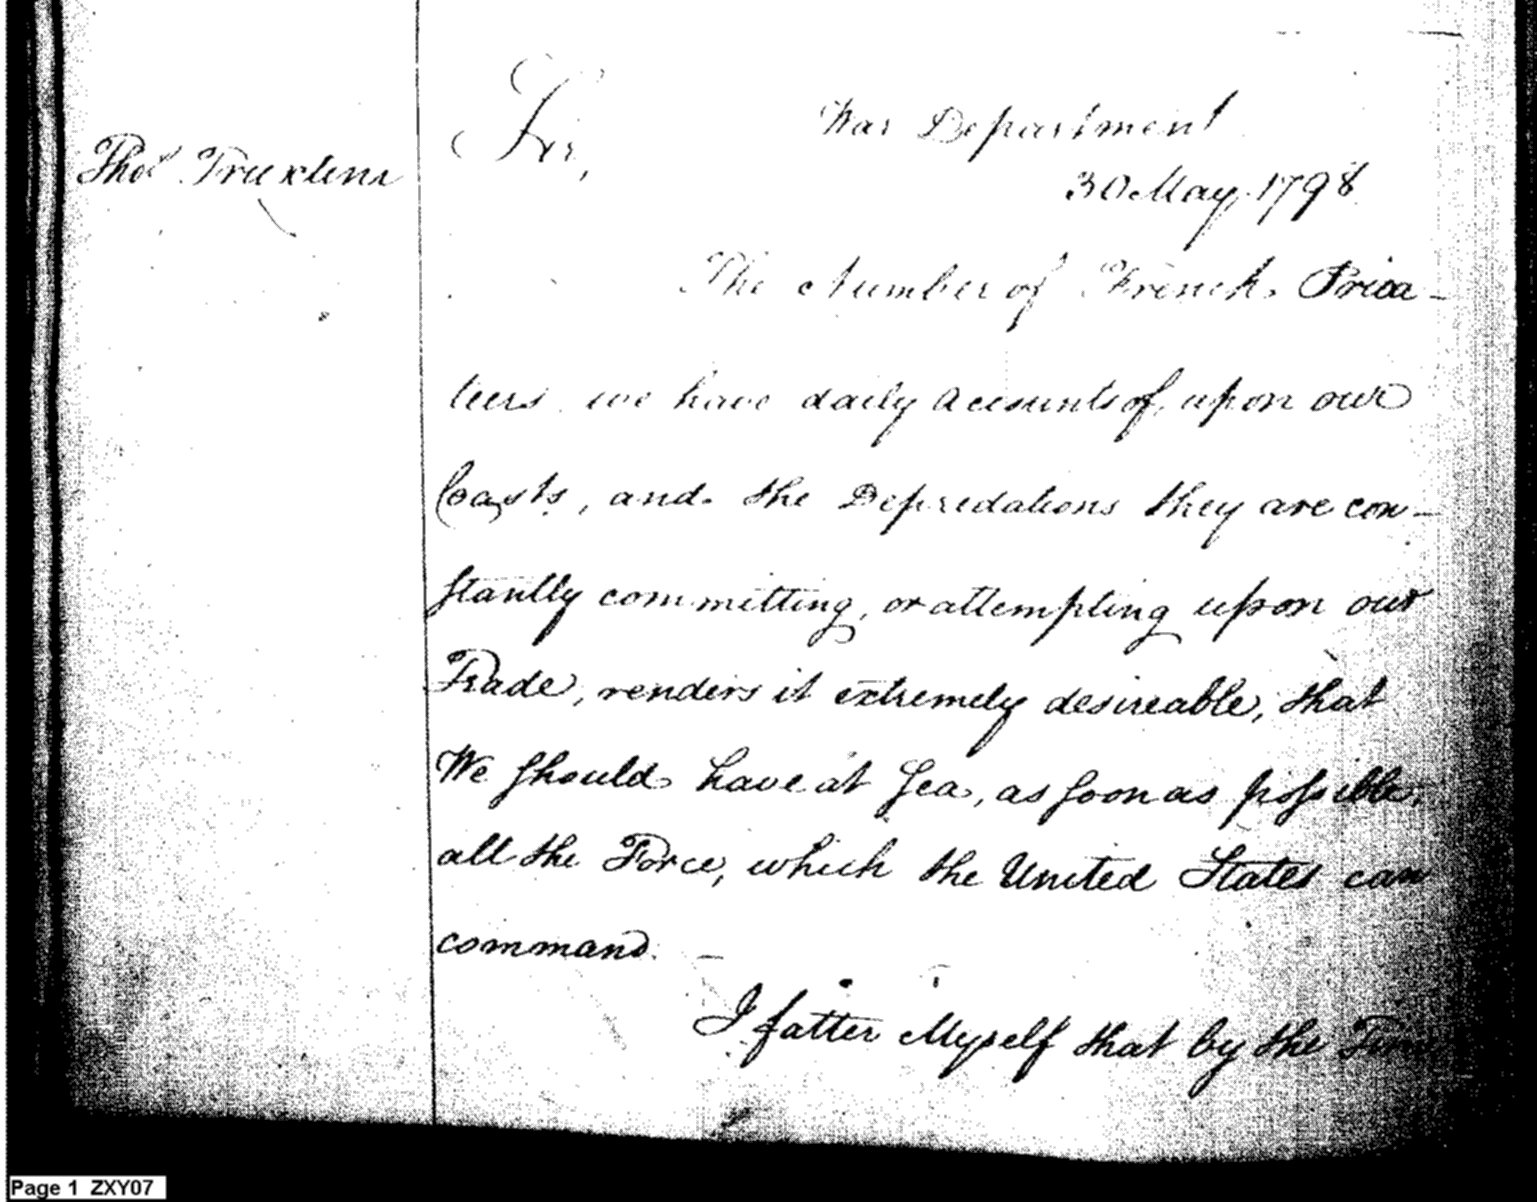 Sir,
War Department
Thos. Truxtun
30 May, 1798
The Number of French Priva-
teers we have daily Accounts of, upon our
Coasts, and the Depredations they are con-
stantly committing, or attempting upon our
Trade, renders it extremely desireable, that
We should have at Sea, as soon as possible,
all the Force, which the United States can
command. —
I flatter Myself that by the Time
Page 1 ZXY07